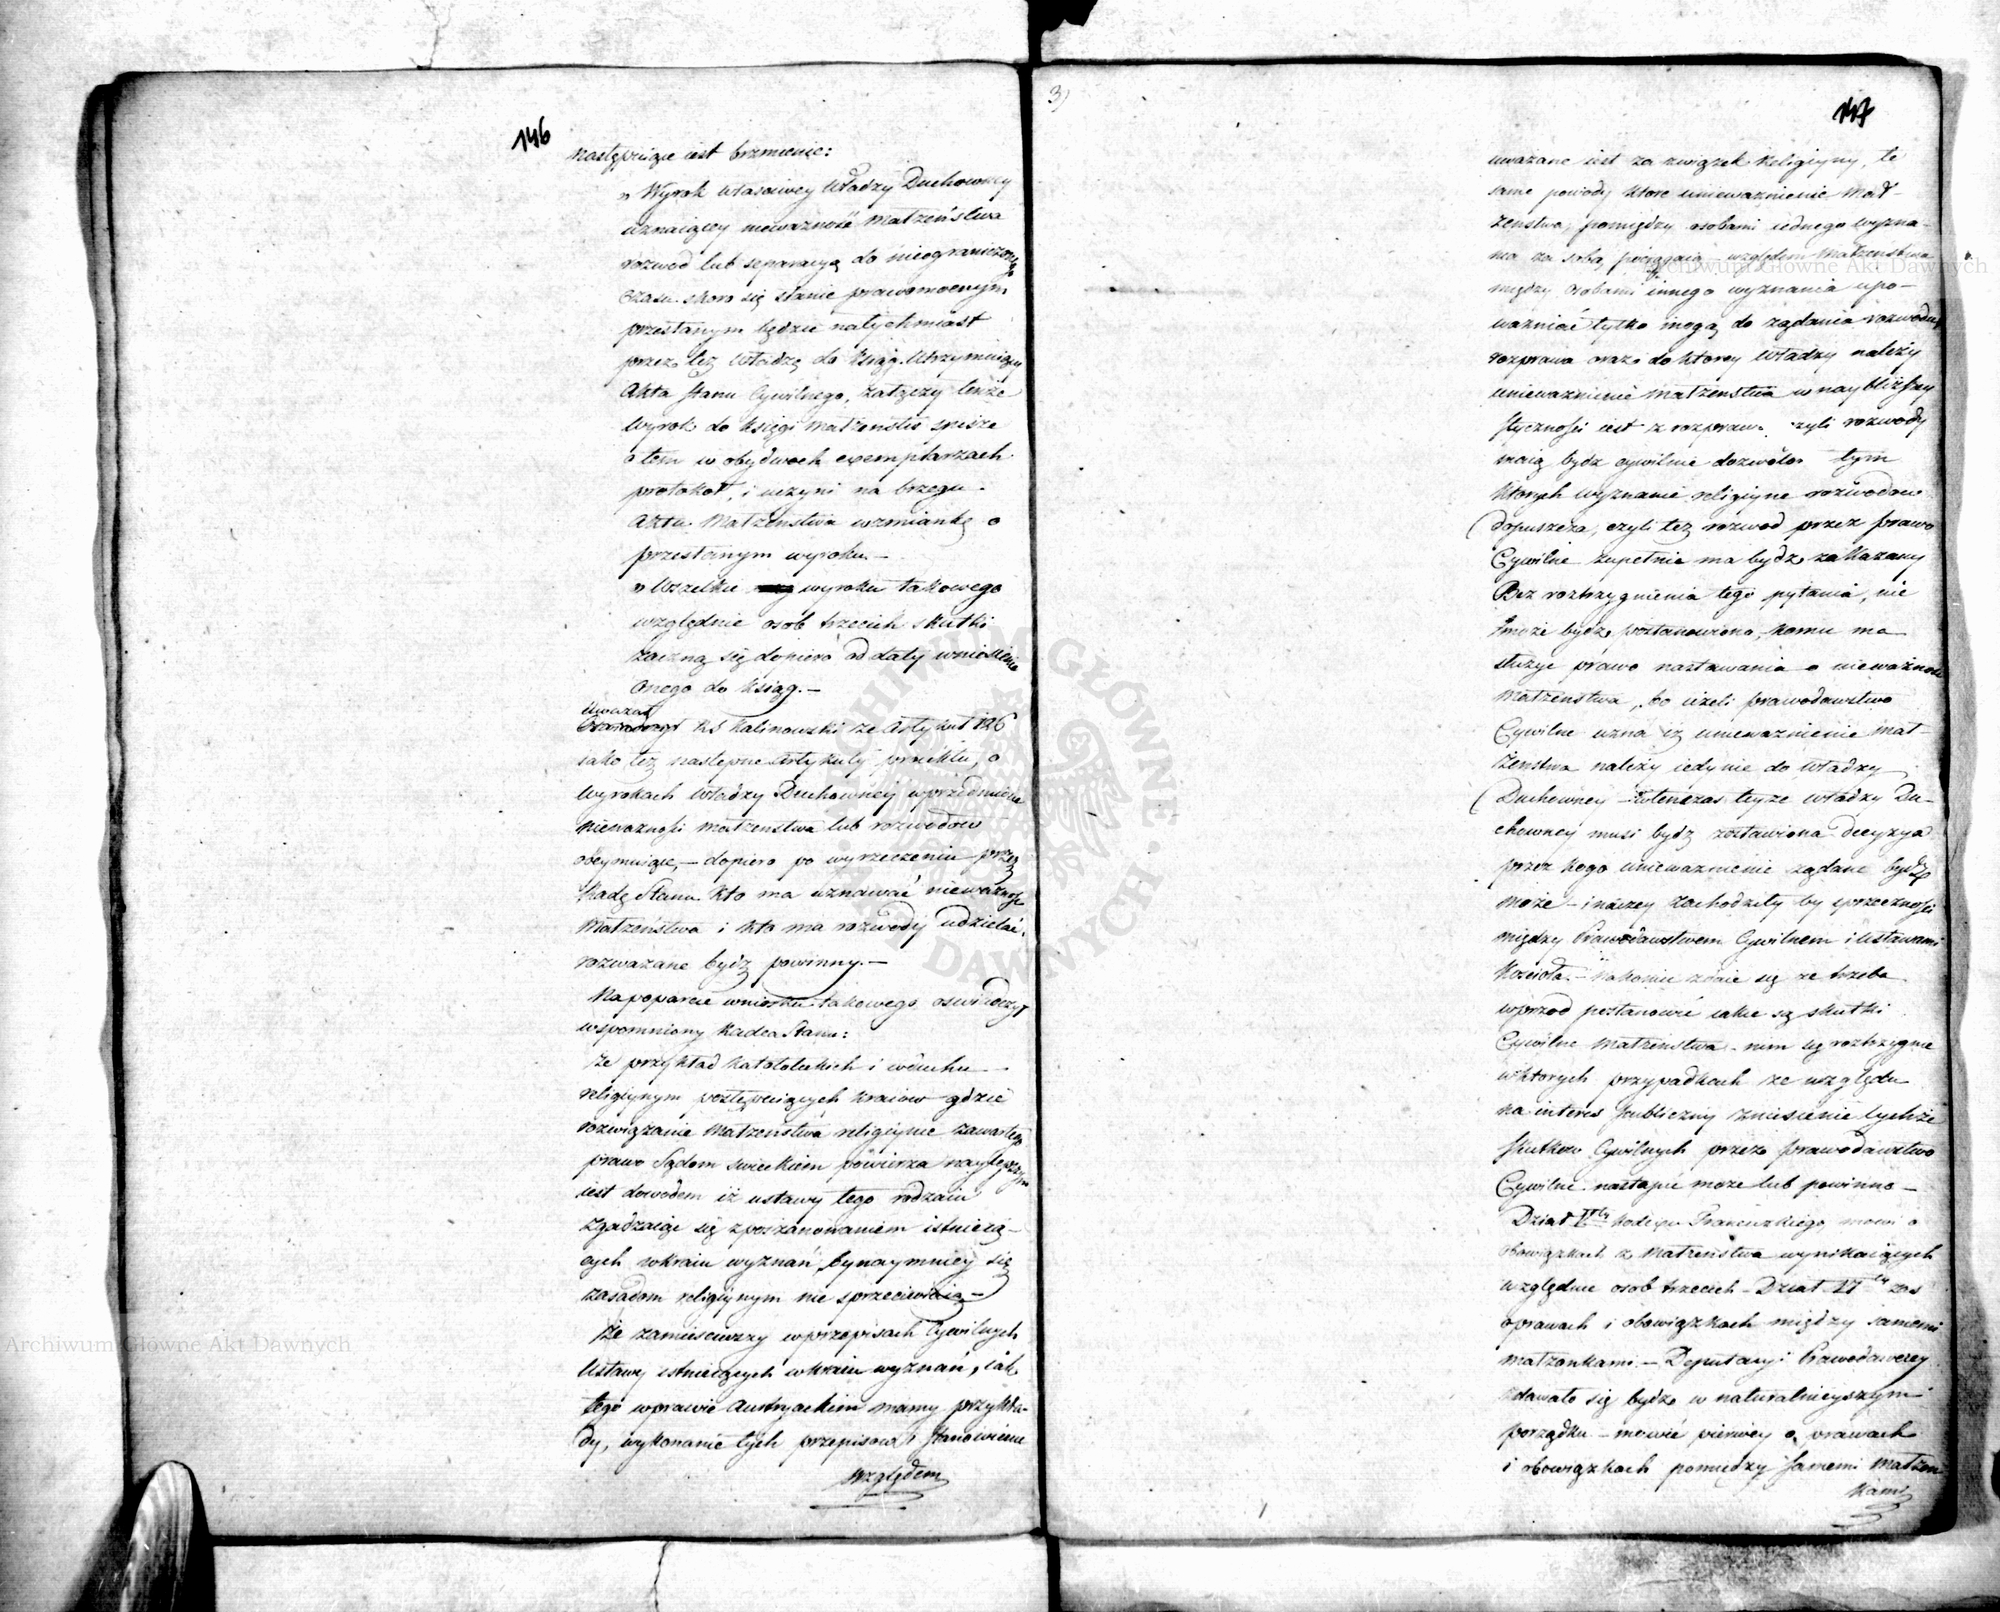 146
następuiące iest brzmienie:
„ Wyrok własciwey Władzy Duchowney
uznaiący nieważność Małżeństwa
rozwod lub separacyą do nieograniczonego
czasu skoro się stanie prawomocnym
przesłanym będzie natychmiast
przez tęż Władzę do Xiąg. Utrzymuiący
Akta Stanu Cywilnego, załączy tenże
Wyrok do Xięgi Małżeństw spisze
o tem w obydwoch exemplarzach
protokoł, i uczyni na brzegu
Aktu Małżeństwa wzmiankę o
przesłanym wyroku.—
„ Wszelkie wyroku takowego
względnie osob trzecich skutki
zaczną się dopiero od daty wniesienia
onego do Xiąg.—
Uważał
KS Kalinowski że Artykuł 126
iako też następne Artykuły proiektu, o
Wyrokach Władzy Duchowney w przedmiocie
nieważności Małżeństwa lub rozwodow
obeymuiące,— dopiero po wyrzeczeniu przez
Radę Stanu kto ma uznawać nieważność
Małżeństwa i kto ma rozwody udzielać,
rozważane bydź powinny.—
Na poparcie wniosku takowego, oswiadczył
wspomniony Radca Stanu:
że przykład Katolickich i w duchu
religiynym postępuiących kraiow gdzie
rozwiązanie Małżeństwa religiynie zawartego
prawo Sądom swieckim powierza naylepszym
iest dowodem iż ustawy tego rodzaiu
zgadzaiąc się z poszanowaniem istnieią-
cych w kraiu wyznań, bynaymniey się
zasadom religiynym nie sprzeciwiaią—
że zamieściwszy w przepisach Cywilnych
Ustawy istnieiących w kraiu wyznań, iak
tego w prawie Austryackim mamy przykła-
dy, wykonanie tych przepisow i stanowienie
względem
3)
147
uważane iest za związek Religiyny, te
same powody ktore unieważnienie Mał-
żeństwa, pomiędzy osobami iednego wyzna-
nia za sobą pociągaią względem Małżeństwa
między osobami innego wyznania upo-
ważniać tylko mogą do żądania rozwodu,
rozprawa oraz do ktorey Władzy należy
unieważnienie Małżeństwa w naybliższey
styczności iest z rozpraw. czyli rozwody
maią bydź cywilnie dozwolo tym
ktorych wyznanie religiyne rozwodow
dopuszcza, czyli też rozwod przez prawo
Cywilne zupełnie ma bydź zakazany
Bez rozstrzygnienia tego pytania, nie
może bydź postanowiono, komu ma
służyc prawo nastawania o nieważność
Małżeństwa, bo ieżeli prawodawstwo
Cywilne uzna iż unieważnienie Mał-
żeństwa należy iedynie do Władzy
Duchowney — wtenczas teyże Władzy Du-
chowney musi bydź zostawiona decyzya
przez kogo unieważnienie żądane bydź
może — inaczey zachodziły by sprzeczności
między Prawodawstwem Cywilnem i Ustawami
Kościoła.— Nakoniec zdaie się że trzeba
wprzod postanowić iakie są skutki
Cywilne Małżeństwa — nim się rozstrzygnie
w ktorych przypadkach ze względu
na interes publiczny zniesienie tychże
skutkow Cywilnych przez prawodawstwo
Cywilne nastąpić może lub powinno—
Dział Kodexu Francuzkiego mowi o
obowiązkach z Małżeństwa wynikaiących
względnie osob trzecich — Dział VIty zas
o prawach i obowiązkach między samemi
małżonkami.— Deputacyi Prawodawczey
zdawało się bydź w naturalnieyszym
porządku — mowić pierwey o prawach
i obowiązkach pomiedzy samemi Małżon
kami
Archiwum Główne Akt Dawnych
Archiwum Główne Akt Dawnych
ARCHIWUM GŁÓWNE AKT DAWNYCH